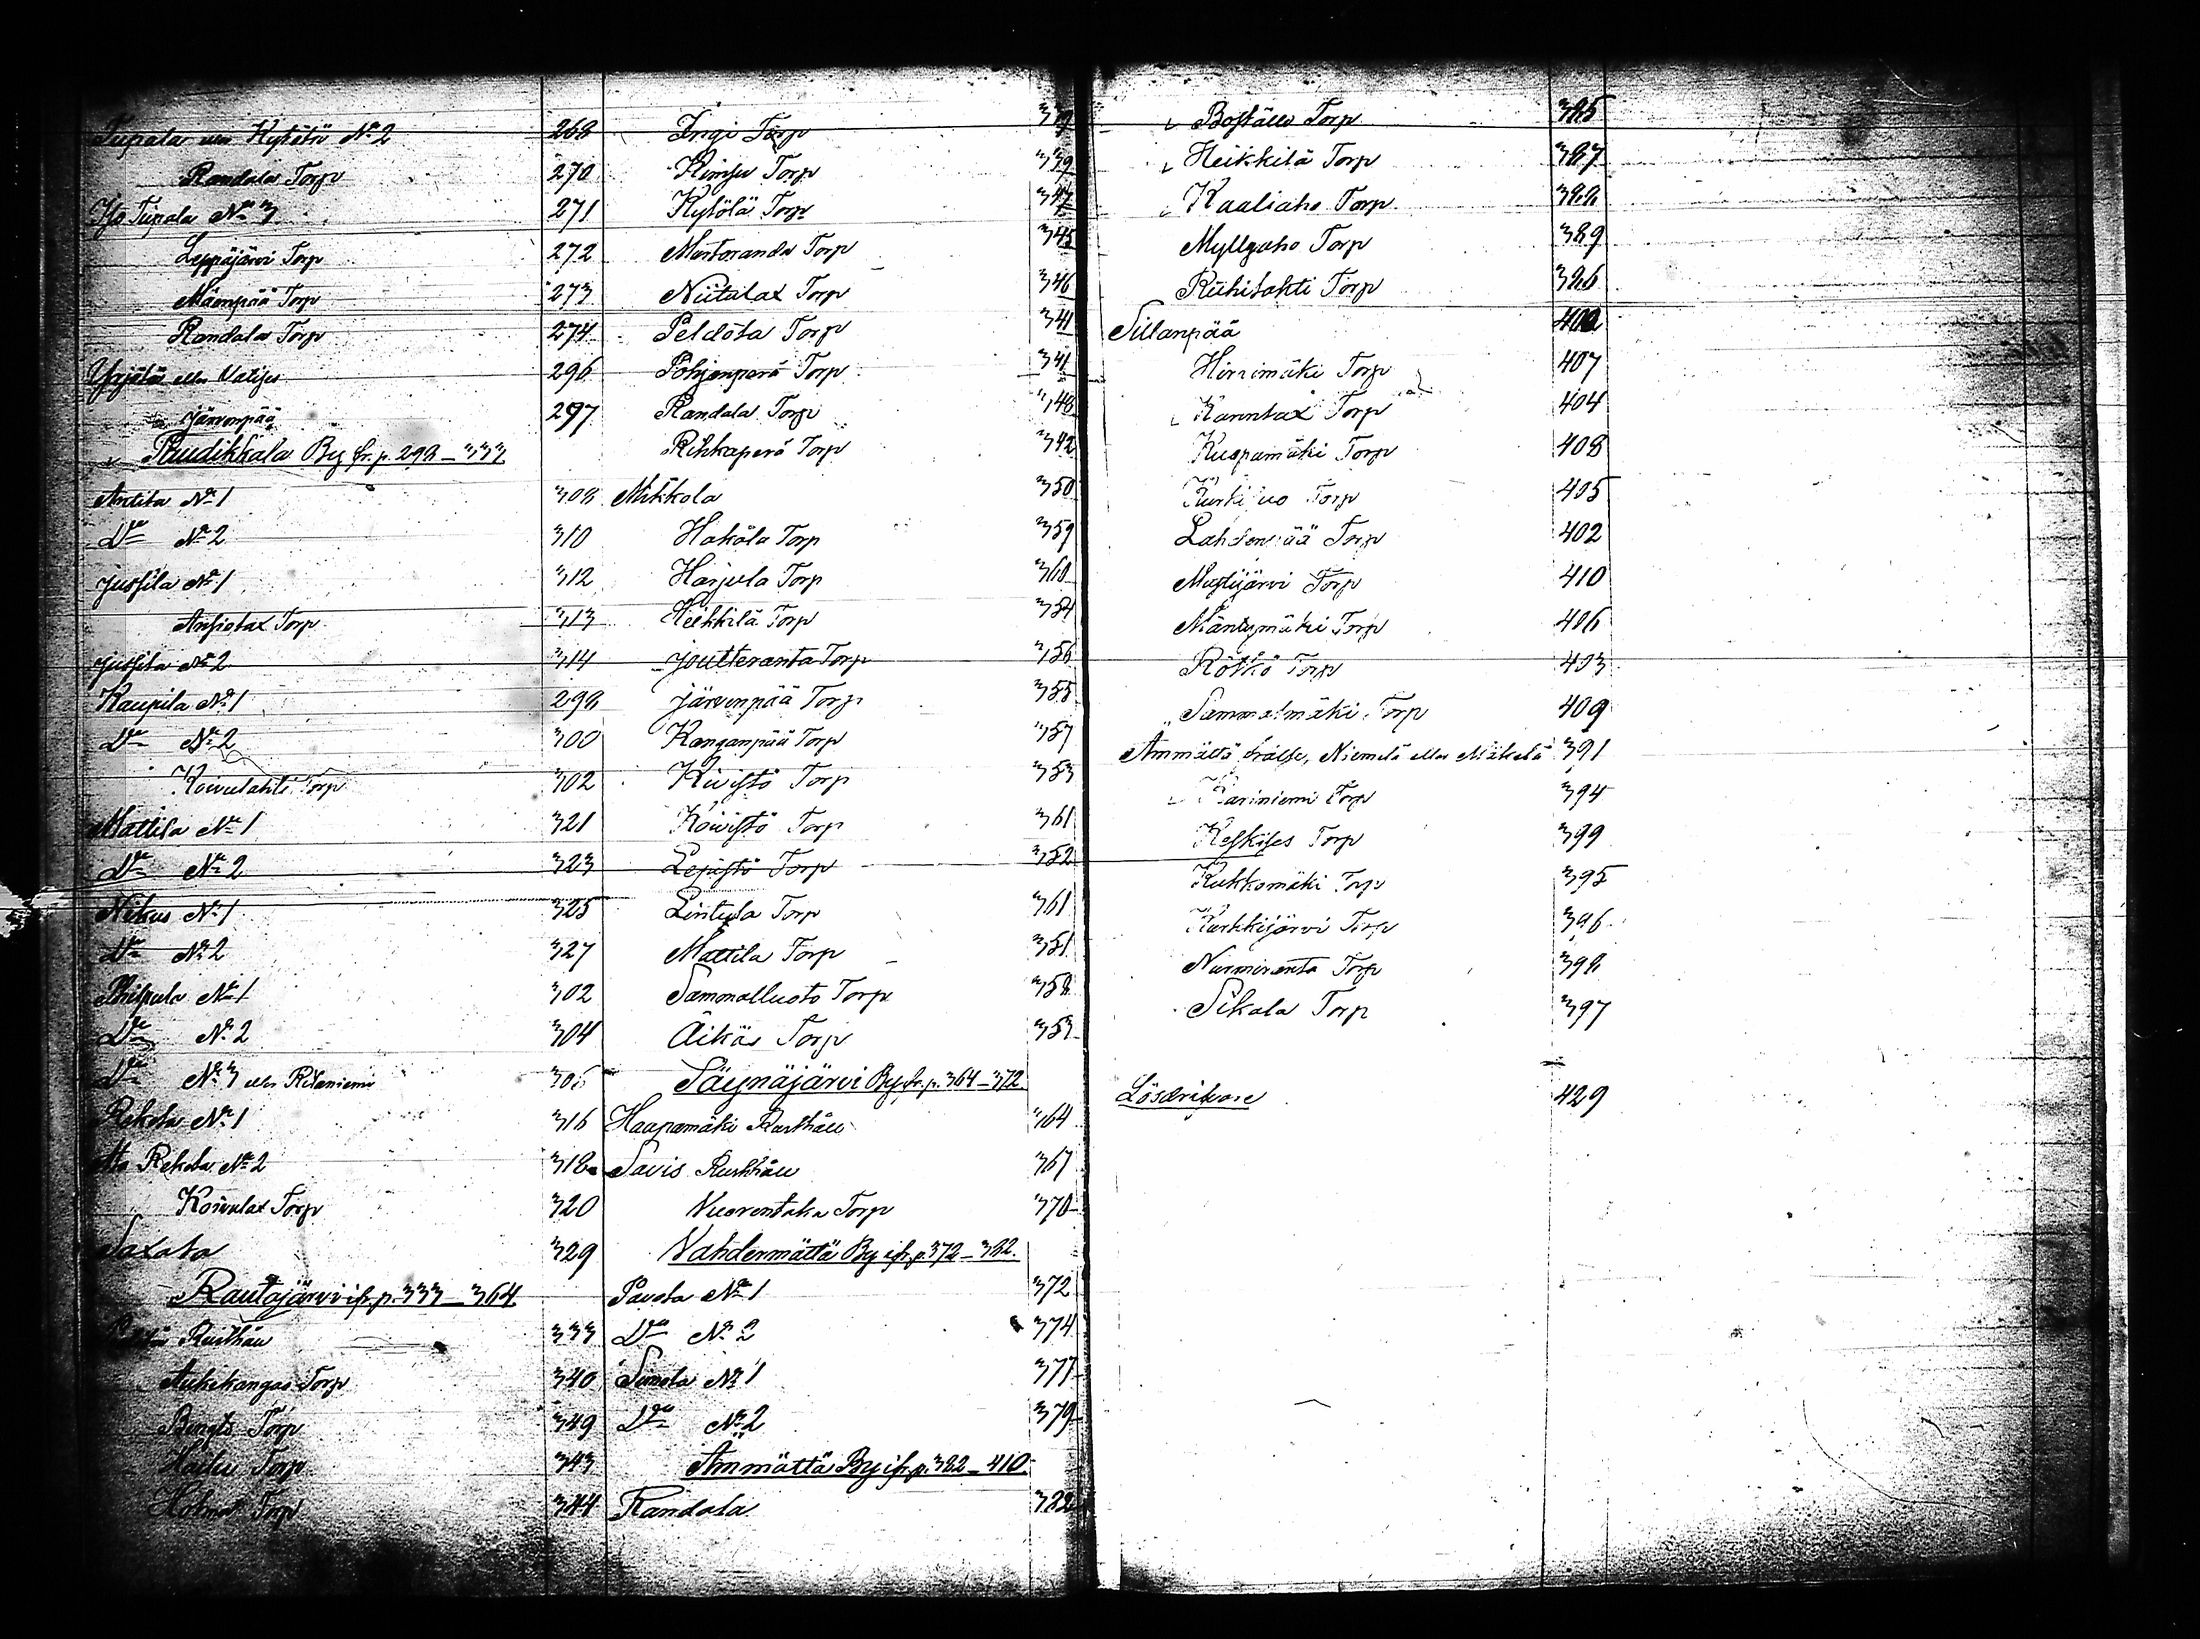 Tupala eller Kytölä No 2 268
Randala Torp 270
Iso Tupala No 3 271
Leppäjärvi Torp 272
Mäenpää Torp 273
Randala Torp 274
Yrjölä eller 296
Järvenpää 297
Puudikkala By fr. p. 298 – 333
Antila No 1 308
Do No 2 310
Jussila No 1 312
Ansiolax Torp 313
Jussila No 2 314
Kaupila No 1 298
Do No 2 300
Koivulahti Torp 302
Mattila No 1 321
Do No 2 323
Nikus No 1 325
Do No 2 327
Philpula No 1 302
Do No 2 304
Do No 3 eller Ritaniemi
Rekola No 1 316
Rekola No 2 318
Koivulax Torp 320
Saxala 329
Rautajärvi ifr. p. 333 – 364
Rusthåll 333
Aukikangas Torp 340
Bengts Torp 349
Torp 343
Holma Torp 344
Ingi Torp
Kimsu Torp 339
Kytölä Torp 347
Mustoranda Torp 345
Niitulax Torp 346
Peldola Torp 341
Pohjenperä Torp 341
Randala Torp 348
Rihkaperä Torp 342
Mikkola 350
Hakola Torp 359
Harjula Torp 360
Heikkilä Torp 354
Joutteranta Torp 356
Järvenpää Torp 355
Kanganpää Torp 357
Kivistö Torp 353
Koivistö Torp 361
Lepistö Torp 352
Lintula Torp 361
Mattila Torp 351
Sammalluoto Torp 358
Äikäs Torp 353
Säynäjärvi By fr. p. 364 – 372
Haapamäki Rusthåll 364
Savis Rusthåll 367
Vuorentaka Torp 370
Vahdermättä By ifr. p. 372 – 382.
Pavola No 1 372
Do No 2 374
Simola No 1 377
Do No 2 379
Ämmättä By ifr. p. 382 – 410
Randala 382
Boställe Torp 385
Heikkilä Torp 387
Kaaliaho Torp 388
Myllyaho Torp 389
Riihilahti Torp 386
Sillanpää 402
Hirsimäki Torp 407
Kanntax Torp 404
Kuspamäki Torp 408
Torp 405
Lahdenpää Torp 402
Mustijärvi Torp 410
Mäntymäki Torp 406
Rötkö Torp 403
Sammalmäki Torp 409
Ämmättä frälse, Niemelä eller Mäkelä 391
Kariniemi Torp 394
Keskises Torp 399
Kukkomäki Torp 395
Kurkkijärvi Torp 396
Nurmiranta Torp 398
Sikala Torp 397
Lösdrifvare 429